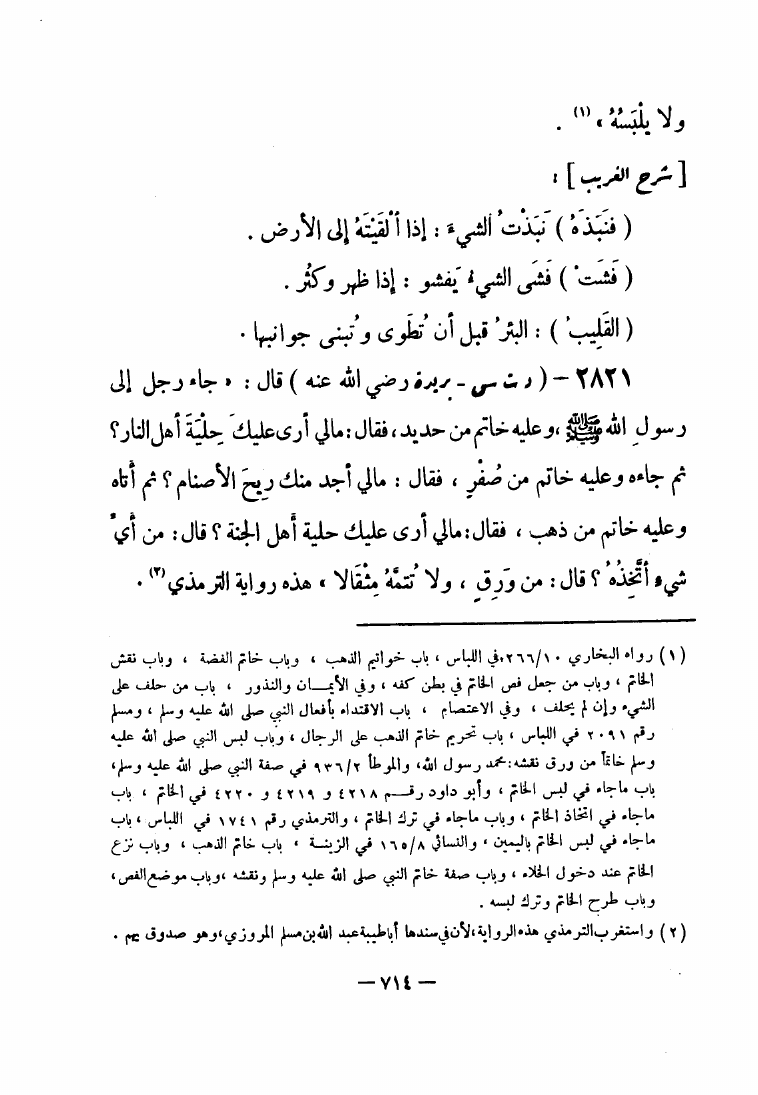 ولا يلْبَسُهُ » (١) .
[ شرح الغريب ] :
( فَنَبَذَهُ ) نَبَذْتُ الشيءَ : إذا ألْقَيْتَهُ إلى الأرض .
( فَشَتْ ) فَشَى الشيءُ يَفشو : إذا ظهر وكثُر .
( القَلِيبُ ) : البئرُ قبل أن تُطوى وتُبنى جوانبها .
٢٨٢١ – ( د ت س - بريدة رضي الله عنه ) قال : « جاء رجل إلى
رسولِ الله ﷺ ،وعليه خاتم من حديد ، فقال : مالي أرى عليكَ حِلْيَةَ أهل النار؟
ثم جاءه وعليه خاتم من صُفْرٍ ، فقال : مالي أجد منك رِيحَ الأصنام ؟ ثم أتاه
وعليه خاتم من ذهب ، فقال : مالي أرى عليك حلية أهل الجنة ؟ قال : من أيِّ
شيء أتَّخِذُهُ ؟ قال : من وَرِقٍ ، ولا تُتمَّهُ مِثْقَالا » هذه رواية الترمذي (٢) .
(١) رواه البخاري ٢٦٦/١٠ ،في اللباس ، باب خواتيم الذهب ، وباب خاتم الفضة ، وباب نقش
الخاتم ، وباب من جعل فص الخاتم في بطن كفه ، وفي الأيمـــان والنذور ، باب من حلف على
الشيء وإن لم يحلف ، وفي الاعتصام ، باب الاقتداء بأفعال النبي صلى الله عليه وسلم ، ومسلم
رقم ٢٠٩١ في اللباس ، باب تحريم خاتم الذهب على الرجال ، وباب لبس النبي صلى الله عليه
وسلم خاتماً من ورق نقشه : محمد رسول الله، والموطأ ٩٣٦/٢ في صفة النبي صلى الله عليه وسلم،
باب ماجاء في لبس الخاتم ، وأبو داود رقــم ٤٢١٨ و ٤٢١٩ و ٤٢٢٠ في الخاتم ، باب
ماجاء في اتخاذ الخاتم ، وباب ماجاء في ترك الخاتم ، والترمذي رقم ١٧٤١ في اللباس ، باب
ماجاء في لبس الخاتم باليمين ، والنسائي ١٦٥/٨ في الزينــة ، باب خاتم الذهب ، وباب نزع
الخاتم عند دخول الخلاء ، وباب صفة خاتم النبي صلى الله عليه وسلم ونقشه ،وباب موضع الفص،
وباب طرح الخاتم وترك لبسه .
(٢) واستغرب الترمذي هذه الرواية،لأن في سندها أبا طيبة عبد الله بن مسلم المروزي،وهو صدوق يهم .
— ٧١٤ —